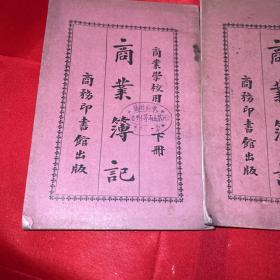 商業學校用
下冊
商業簿記
商務印書館出版
商業簿記
商務印書館出版